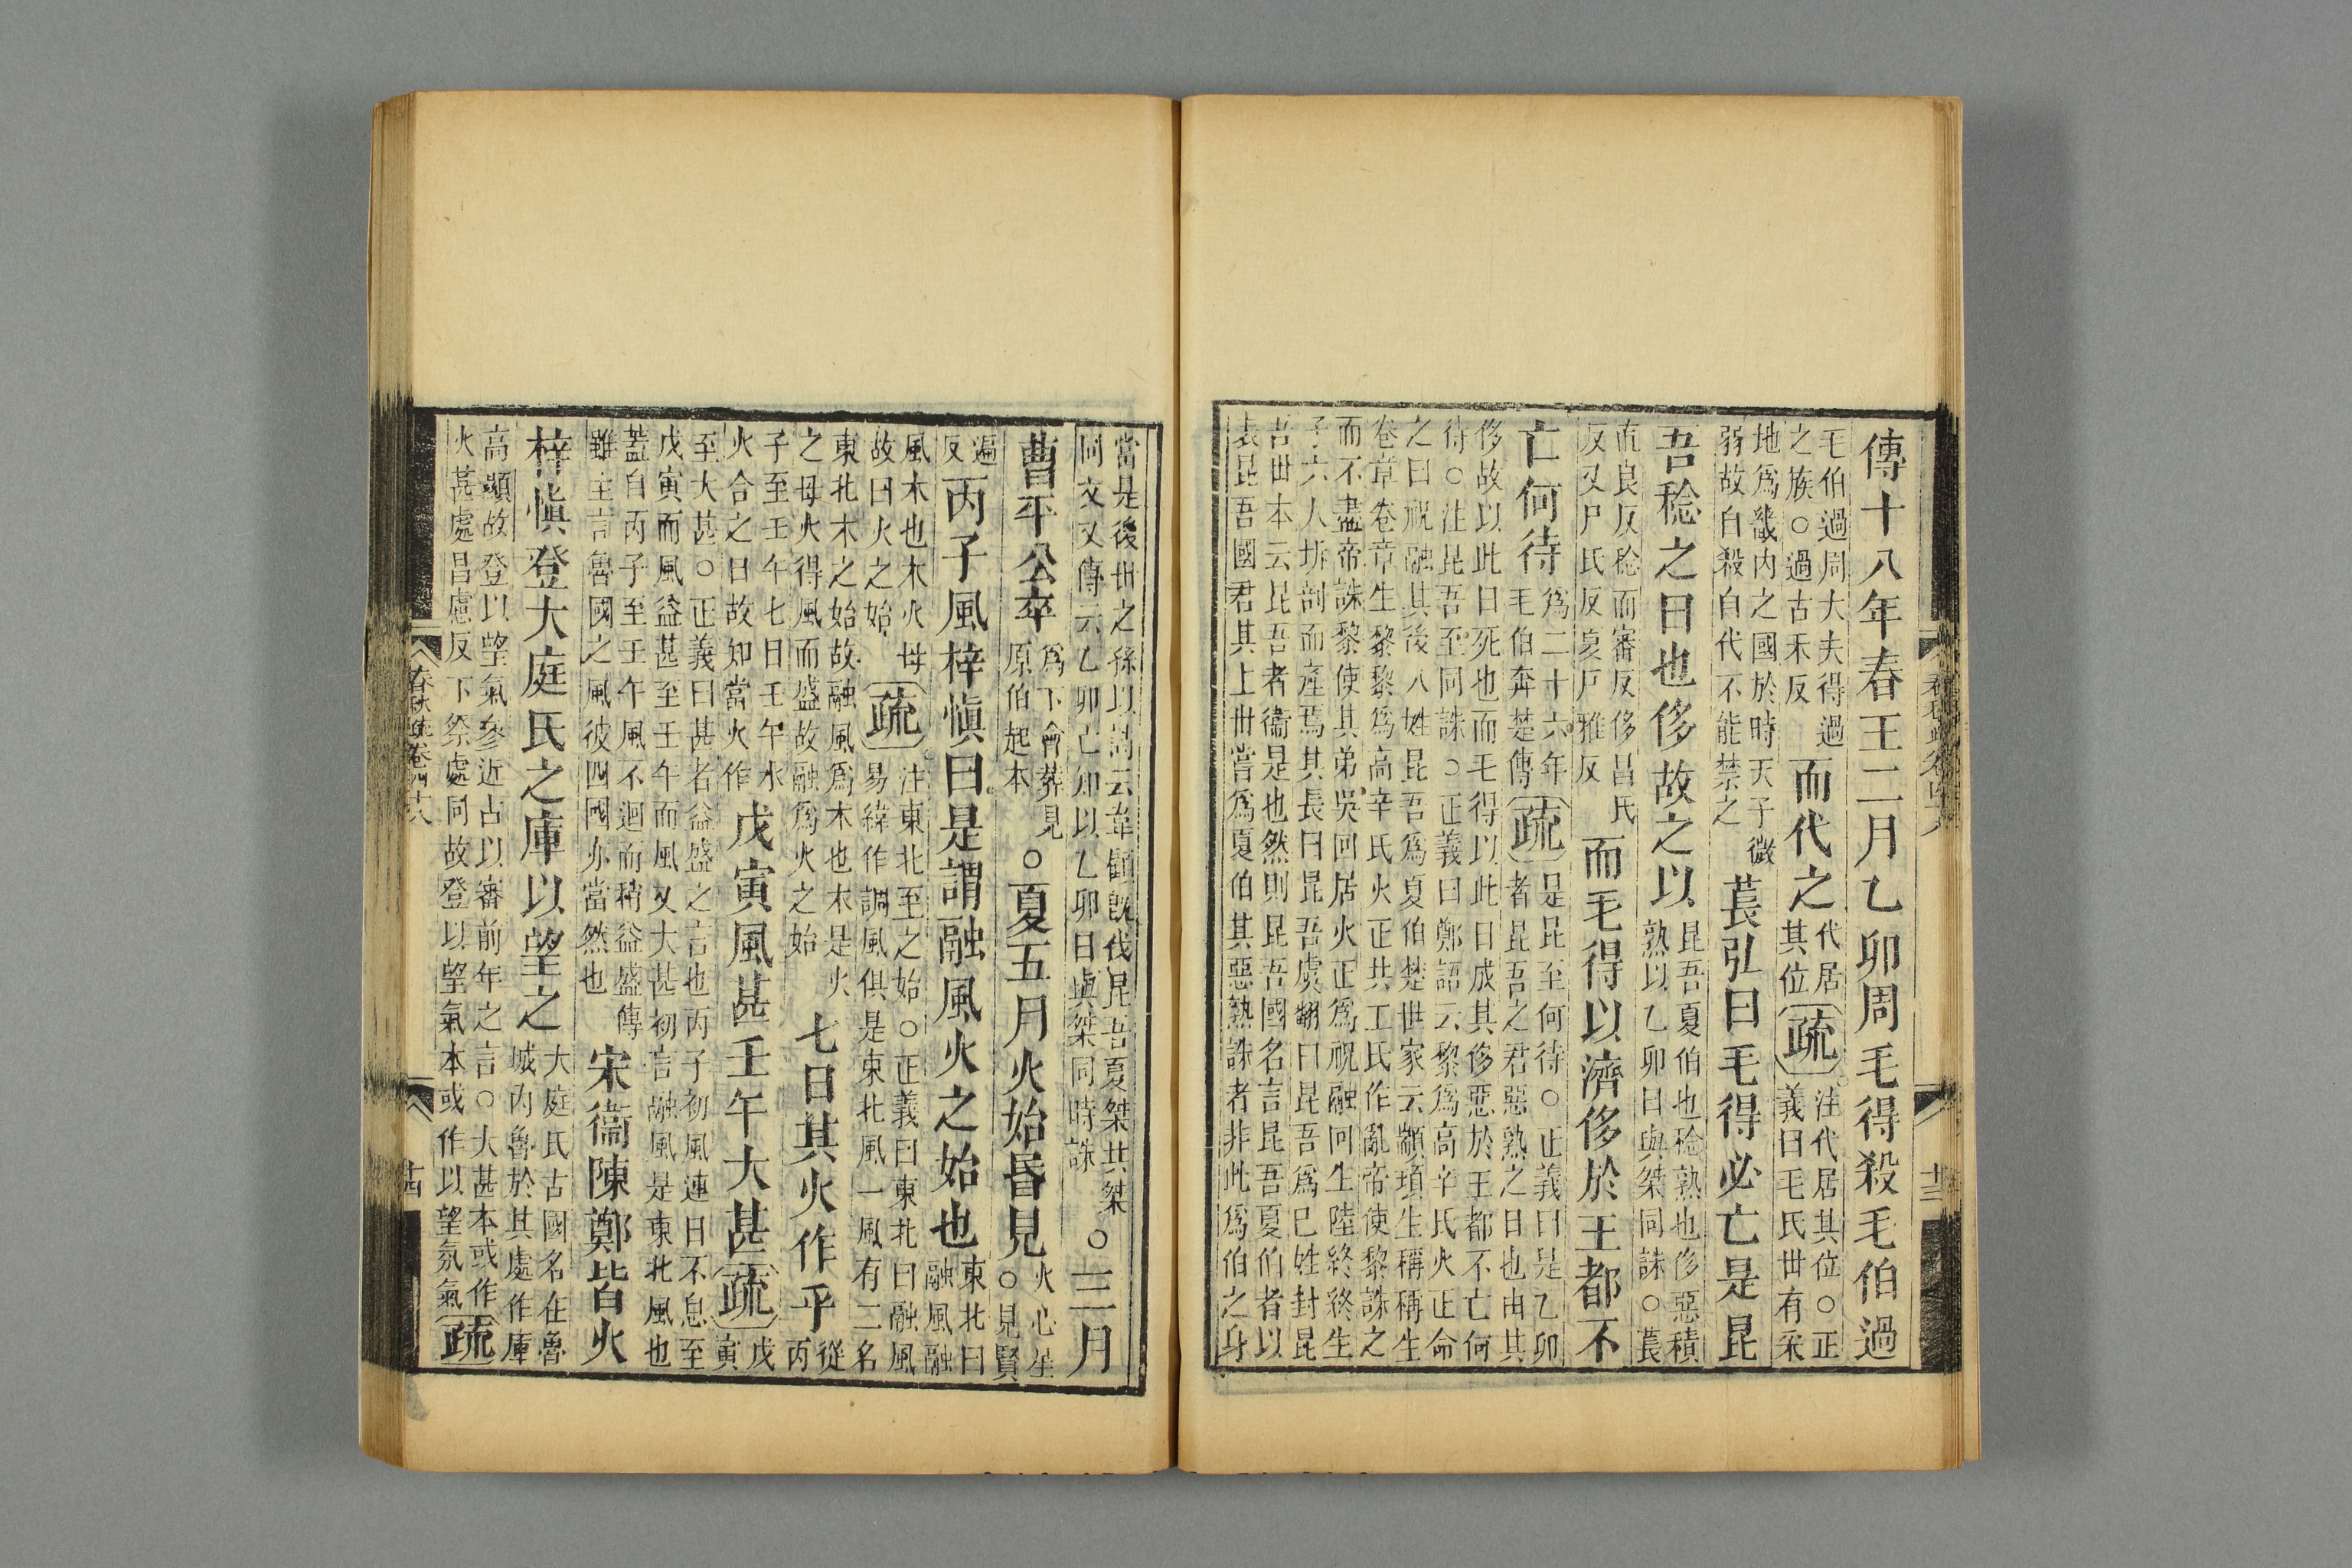 春秋疏卷四十八
十三
傳十八年春王二月乙卯周毛得殺毛伯過
毛伯過周大夫得過
之族○過古禾反
而代之
代居
其位
疏
注代居其位○正
義曰毛氏世有采
地爲畿内之國於時天子微
弱故自殺自代不能禁之
萇弘曰毛得必亡是昆
吾稔之日也侈故之以
昆吾夏伯也稔熟也侈惡積
熟以乙卯日與桀同誅○萇
直良反稔而審反侈昌氏
反又尸氏反夏戸雅反
而毛得以濟侈於王都不
亡何待
爲二十六年
毛伯奔楚傳
疏
是昆至何待○正義曰是乙卯
者昆吾之君惡熟之日也由其
侈故以此日死也而毛得以此日成其侈惡於王都不亡何
待○注昆吾至同誅○正義曰鄭語云黎爲高辛氏火正命
之曰祝融其後八姓昆吾爲夏伯楚世家云顓頊生稱稱生
卷章卷章生黎黎爲高辛氏火正共工氏作亂帝使黎誅之
而不盡帝誅黎使其弟吳回居火正爲祝融回生陸終終生
子六人坼剖而產焉其長曰昆吾虞翻曰昆吾爲巳姓封昆
吾世本云昆吾者衞是也然則昆吾國名言昆吾夏伯者以
表昆吾國君其上世嘗爲夏伯其惡熟誅者非此爲伯之身
當是後世之孫以詩云韋顧旣伐昆吾夏桀共桀
同文又傳云乙卯亡知以乙卯日與桀同時誅
○三月
曹平公卒
爲下會葬見
原伯起本
○夏五月火始昏見
火心星
○見賢
遍
反
丙子風梓慎曰是謂融風火之始也
東北曰
融風融
風木也木火母
故曰火之始
疏
注東北至之始○正義曰東北曰融風
易緯作調風俱是東北風一風有二名
東北木之始故融風爲木也木是火
之母火得風而盛故融爲火之始
七日其火作乎
從
丙
子至壬午七日壬午水
火合之日故知當火作
戊寅風甚壬午大甚
疏
戊
寅
至大甚○正義曰甚者益盛之言也丙子初風連日不息至
戊寅而風益甚至壬午而風又大甚初言融風是東北風也
蓋自丙子至壬午風不迴而稍益盛傳
雖主言魯國之風彼四國亦當然也
宋衞陳鄭皆火
梓慎登大庭氏之庫以望之
大庭氏古國名在魯
城内魯於其處作庫
高顯故登以望氣參近占以審前年之言○大甚本或作
火甚處昌慮反下祭處同故登以望氣本或作以望氛氣
疏
春秋疏卷四十八
十四